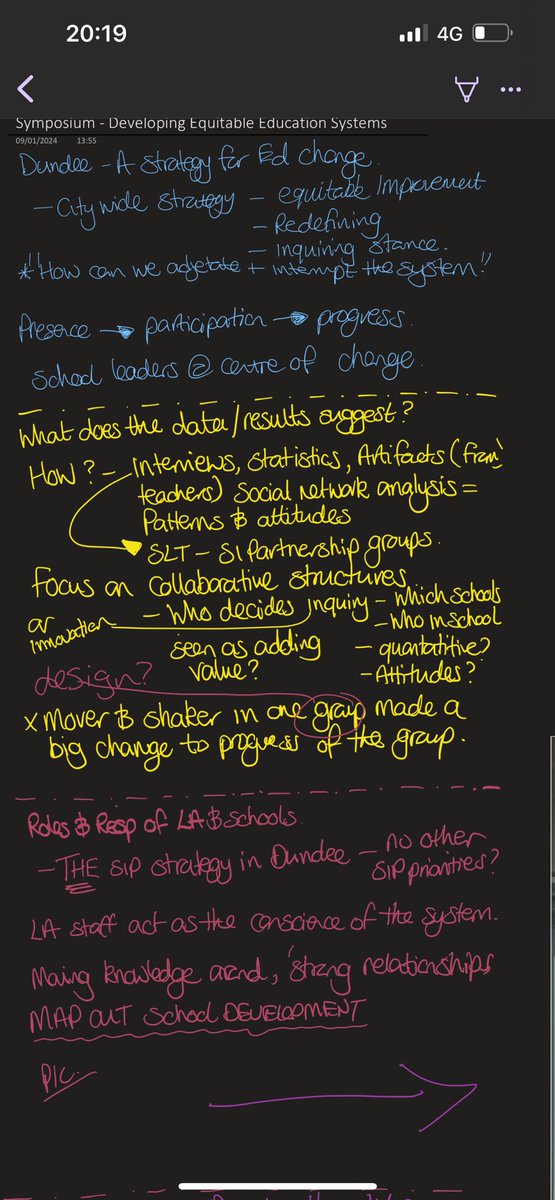 20:19
4G
Symposium - Developing Equitable Education Systems
09/01/2024 13:55
Dundee - A strategy for Ed change.
- City wide strategy - equitable Improvement
- Redefining
- Inquiring stance.
* "How can we adjetate + interrupt the system!"
Presence → participation → progress.
School leaders @ centre of change.
What does the data/results suggest?
How? - Interviews, Statistics, Artifacts (from
teachers) Social Network analysis =
Patterns & attitudes
SLT - SI Partnership groups.
Focus on Collaborative structures
or innovation - Who decides inquiry - which schools
- Who in school
seen as adding value? - quantatitive?
- Attitudes?
design?
x Mover & shaker in one group made a
big change to progress of the group.
Roles & Resp of LA & Schools.
- THE SIP strategy in Dundee - no other
SIP priorities?
LA staff act as the conscience of the system.
Moving knowledge around, strong relationships
MAP OUT School DEVELOPMENT
PIC.